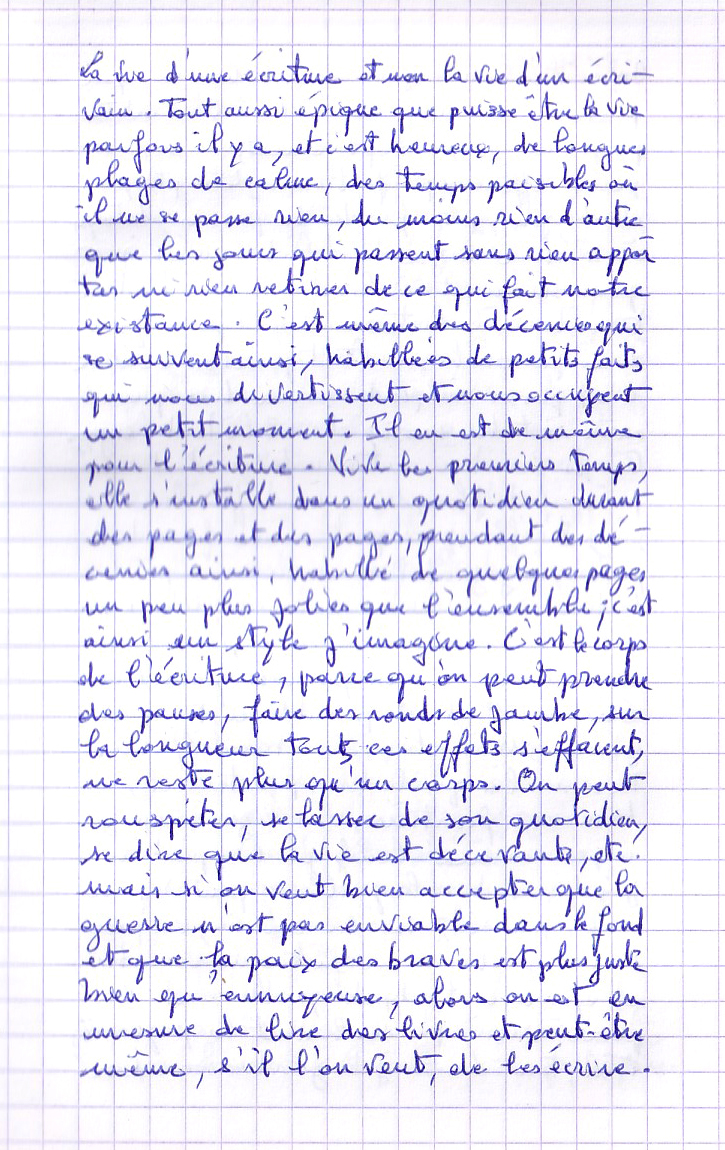 La vie d'une écriture et non la vie d'un écri-
vain. Tout aussi épique que puisse être la vie
parfois il y a, et c'est heureux, de longues
plages de calme, des temps paisibles où
il ne se passe rien, du moins rien d'autre
que les jours qui passent sans rien appor
ter ni rien retirer de ce qui fait notre
existance. C'est même des décennies qui
se suivent ainsi, habillées de petits faits
qui nous divertissent et nous occupent
un petit moment. Il en est de même
pour l'écriture. Vive les premiers temps,
elle s'installe dans un quotidien durant
des pages et des pages, pendant des dé-
cennies ainsi, habillé de quelques pages
un peu plus jolies que l'ensemble ; c'est
ainsi un style j'imagine. C'est le corps
de l'écriture, parce qu'on peut prendre
des pauses, faire des ronds de jambe, sur
la longueur tous ces effets s'effacent,
ne reste plus qu'un corps. On peut
rouspéter, se lasser de son quotidien,
se dire que la vie est décevante, etc.
mais si on veut bien accepter que la
guerre n'est pas enviable dans le fond
et que la paix des braves est plus juste
bien qu'ennuyeuse, alors on est en
mesure de lire des livres et peut-être
même, s'il l'on veut, de les écrire.